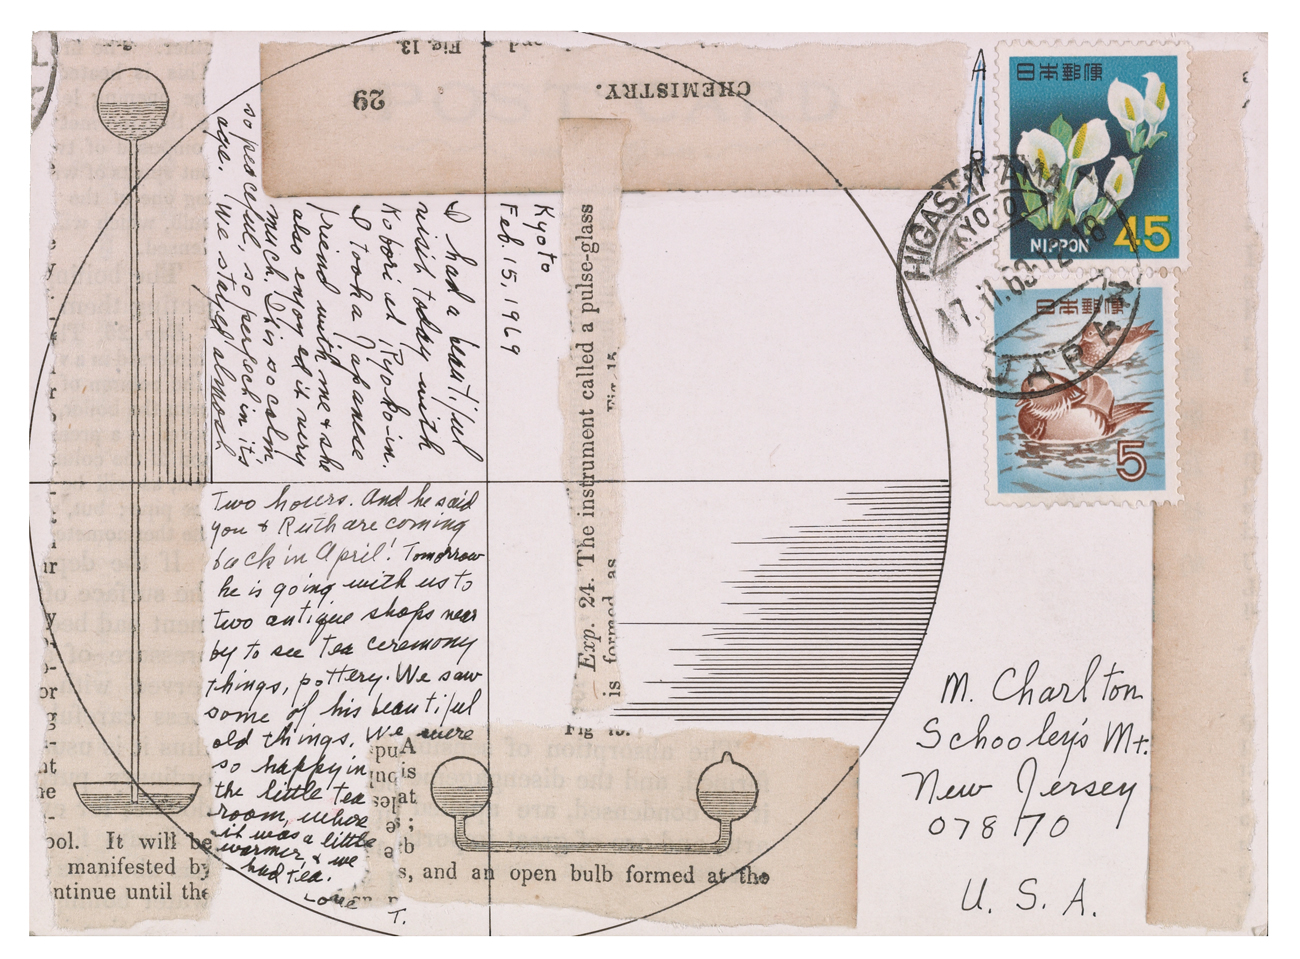 Fig. 13.
29
CHEMISTRY.
AIR
日本郵便
NIPPON 45
HIGASHIYAMA
KYOTO
17.II.69.12-18
JAPAN
日本郵便
5
Kyoto
Feb. 15, 1969
I had a beautiful
visit today with
Kobori at Ryoko-in.
I took a Japanese
friend with me & she
also enjoyed it very
much. It is so calm,
so peaceful, so perfect in its
age. We stayed almost
two hours. And he said
you & Ruth are coming
back in April! Tomorrow
he is going with us to
two antique shops near
by to see tea ceremony
things, pottery. We saw
some of his beautiful
old things. We were
so happy in
the little tea
room, where
it was a little
warmer, & we
had tea.
Love
T.
Exp. 24. The instrument called a pulse-glass
is formed as
Fig. 15.
M. Charlton
Schooley's Mt.
New Jersey
07870
U. S. A.
ool. It will be
manifested by
ntinue until the
s, and an open bulb formed at the